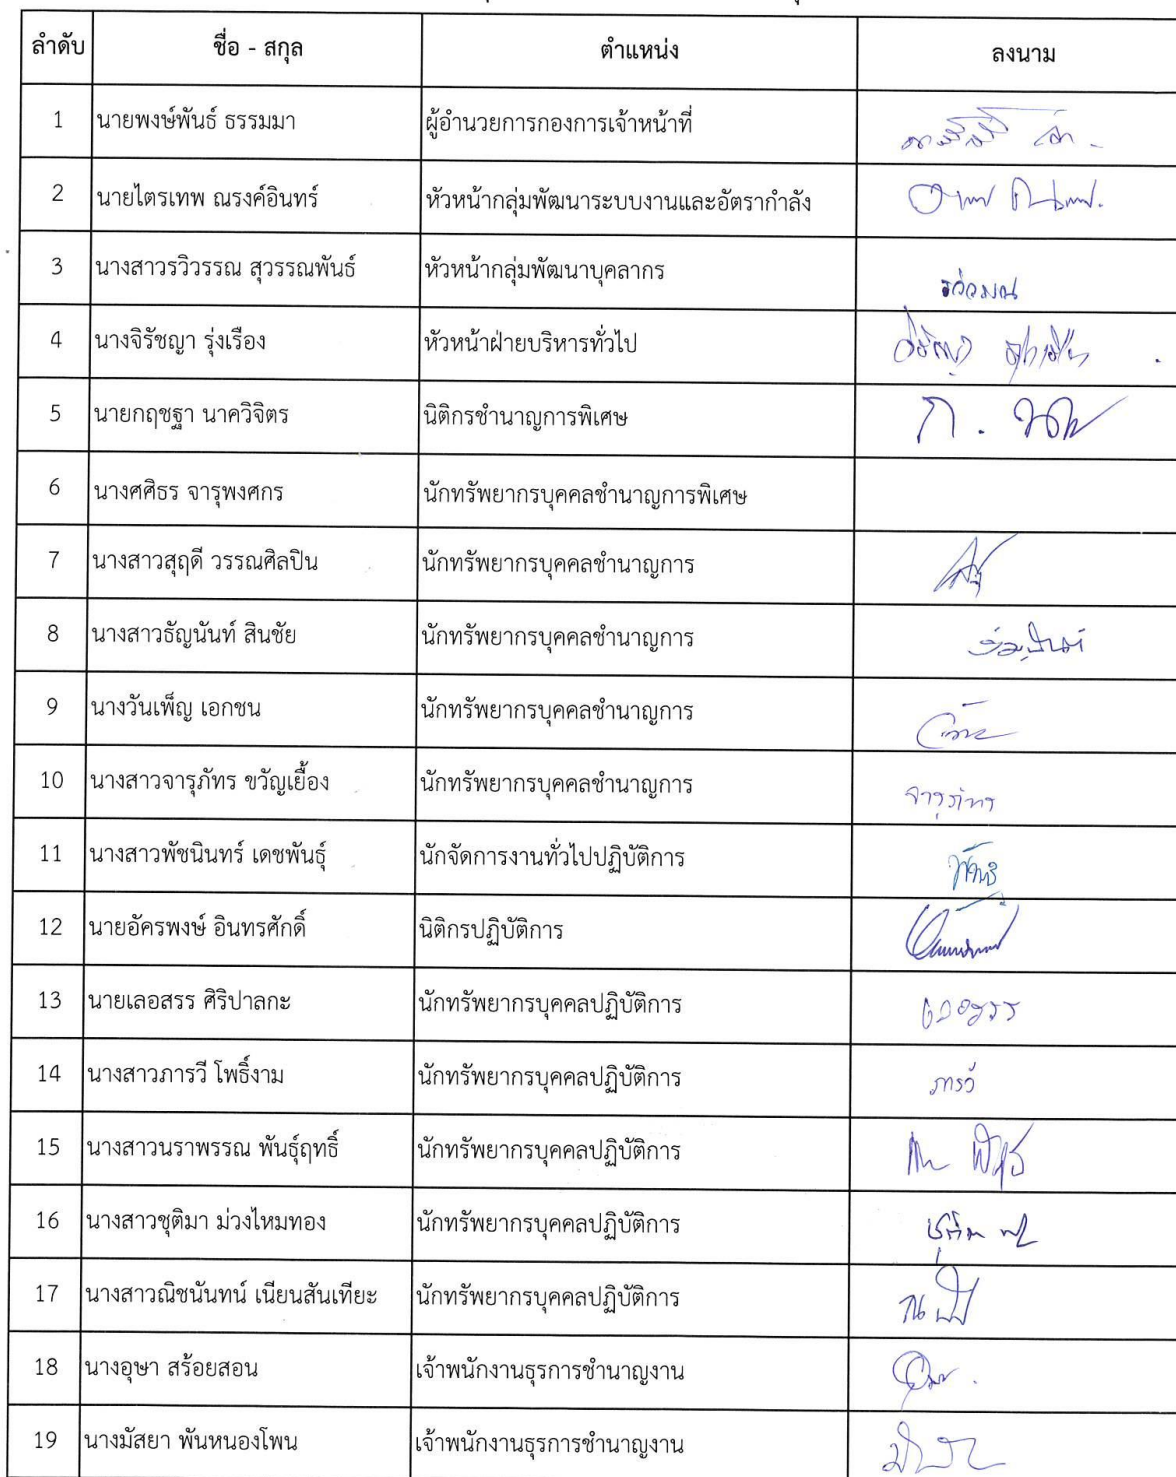 ลำดับ ชื่อ - สกุล ตำแหน่ง ลงนาม
1 นายพงษ์พันธ์ ธรรมมา ผู้อำนวยการกองการเจ้าหน้าที่
2 นายไตรเทพ ณรงค์อินทร์ หัวหน้ากลุ่มพัฒนาระบบงานและอัตรากำลัง
3 นางสาวรวิวรรณ สุวรรณพันธ์ หัวหน้ากลุ่มพัฒนาบุคลากร
4 นางจิรัชญา รุ่งเรือง หัวหน้าฝ่ายบริหารทั่วไป
5 นายกฤชฐา นาควิจิตร นิติกรชำนาญการพิเศษ
6 นางศศิธร จารุพงศกร นักทรัพยากรบุคคลชำนาญการพิเศษ
7 นางสาวสุฤดี วรรณศิลปิน นักทรัพยากรบุคคลชำนาญการ
8 นางสาวธัญนันท์ สินชัย นักทรัพยากรบุคคลชำนาญการ
9 นางวันเพ็ญ เอกชน นักทรัพยากรบุคคลชำนาญการ
10 นางสาวจารุภัทร ขวัญเยื้อง นักทรัพยากรบุคคลชำนาญการ จารุภัทร
11 นางสาวพัชนินทร์ เดชพันธุ์ นักจัดการงานทั่วไปปฏิบัติการ
12 นายอัครพงษ์ อินทรศักดิ์ นิติกรปฏิบัติการ
13 นายเลอสรร ศิริปาลกะ นักทรัพยากรบุคคลปฏิบัติการ เลอสรร
14 นางสาวภารวี โพธิ์งาม นักทรัพยากรบุคคลปฏิบัติการ ภารวี
15 นางสาวนราพรรณ พันธุ์ฤทธิ์ นักทรัพยากรบุคคลปฏิบัติการ
16 นางสาวชุติมา ม่วงไหมทอง นักทรัพยากรบุคคลปฏิบัติการ
17 นางสาวณิชนันทน์ เนียนสันเทียะ นักทรัพยากรบุคคลปฏิบัติการ
18 นางอุษา สร้อยสอน เจ้าพนักงานธุรการชำนาญงาน
19 นางมัสยา พันหนองโพน เจ้าพนักงานธุรการชำนาญงาน